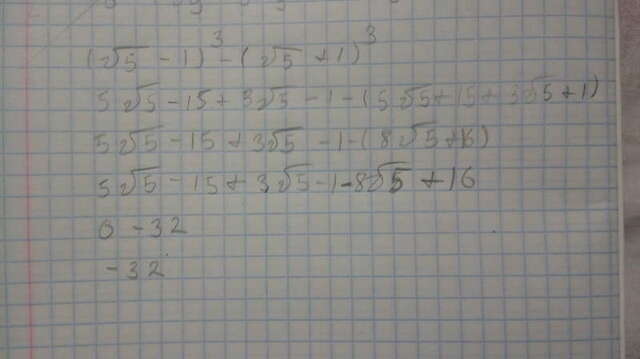 (√5 - 1)³ - (√5 + 1)³
5√5 - 15 + 3√5 - 1 - (5√5 + 15 + 3√5 + 1)
5√5 - 15 + 3√5 - 1 - (8√5 + 16)
5√5 - 15 + 3√5 - 1 - 8√5 + 16
0 - 32
- 32